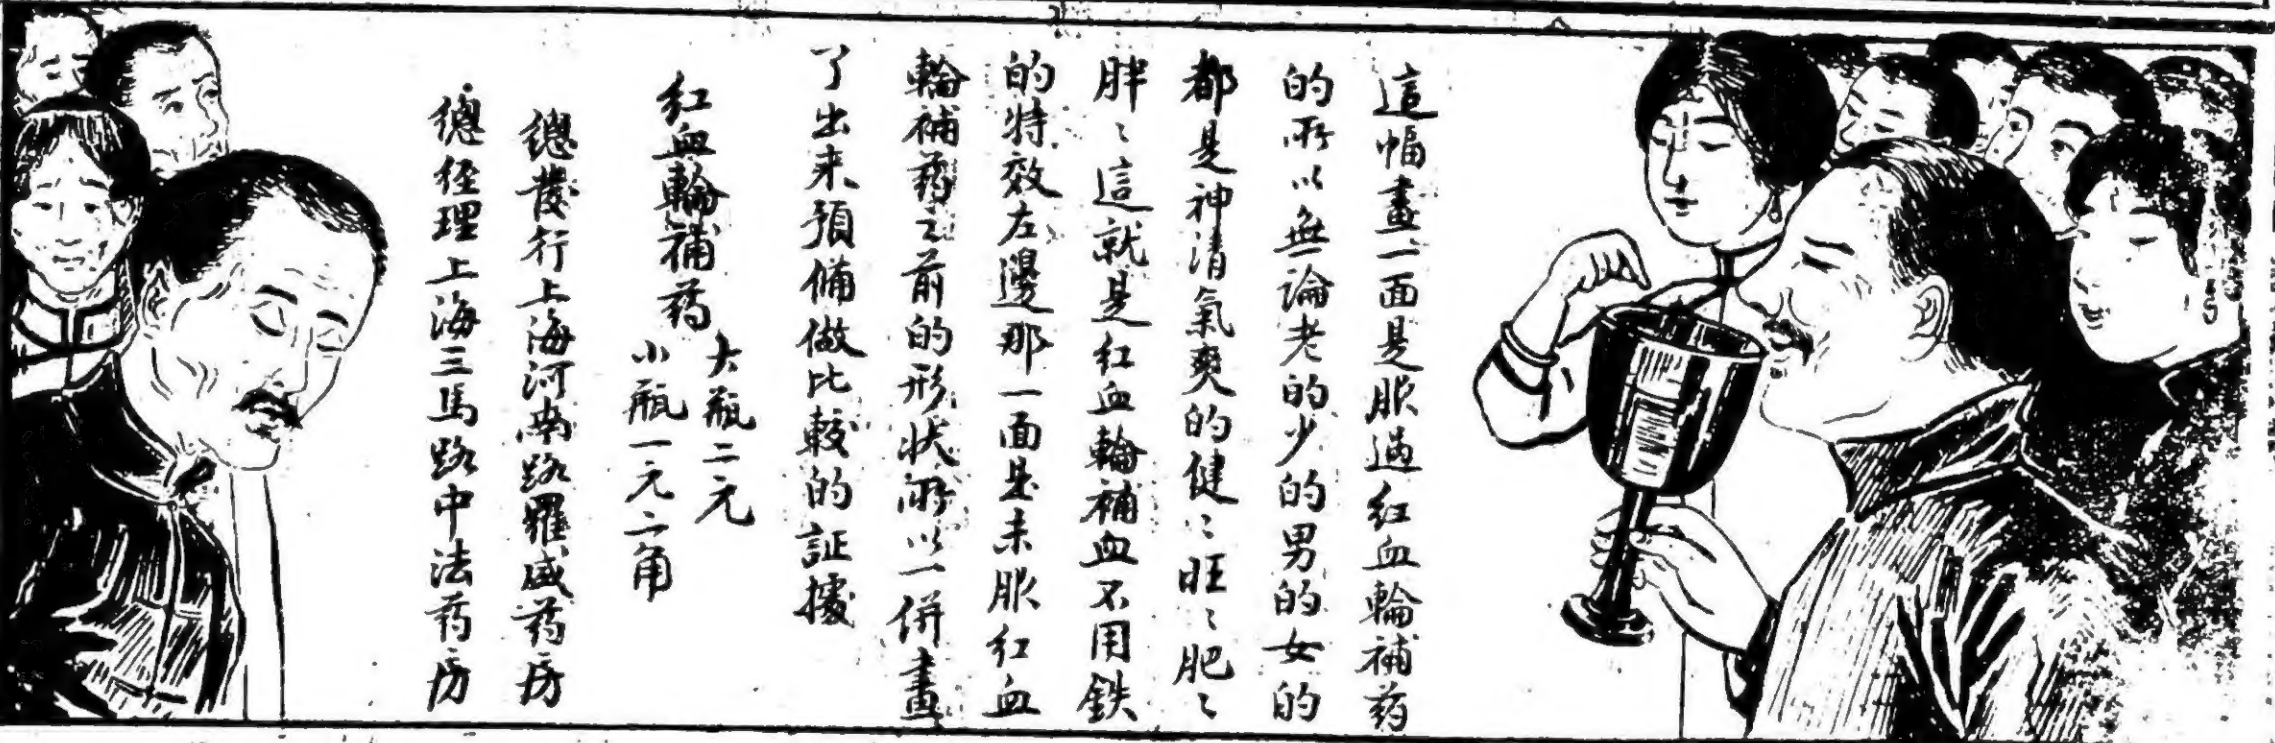 這幅畫一面是服過紅血輪補药
的所以無論老的少的男的女的
都是神清氣爽的健〻旺〻肥〻
胖〻這就是紅血輪補血不用鉄
的特效左邊那一面是未服紅血
輪補药之前的形状所以一併畫
了出来預備做比較的証據
紅血輪補药
大瓶二元
小瓶一元二角
總發行上海河南路羅威药房
總经理上海三馬路中法药房